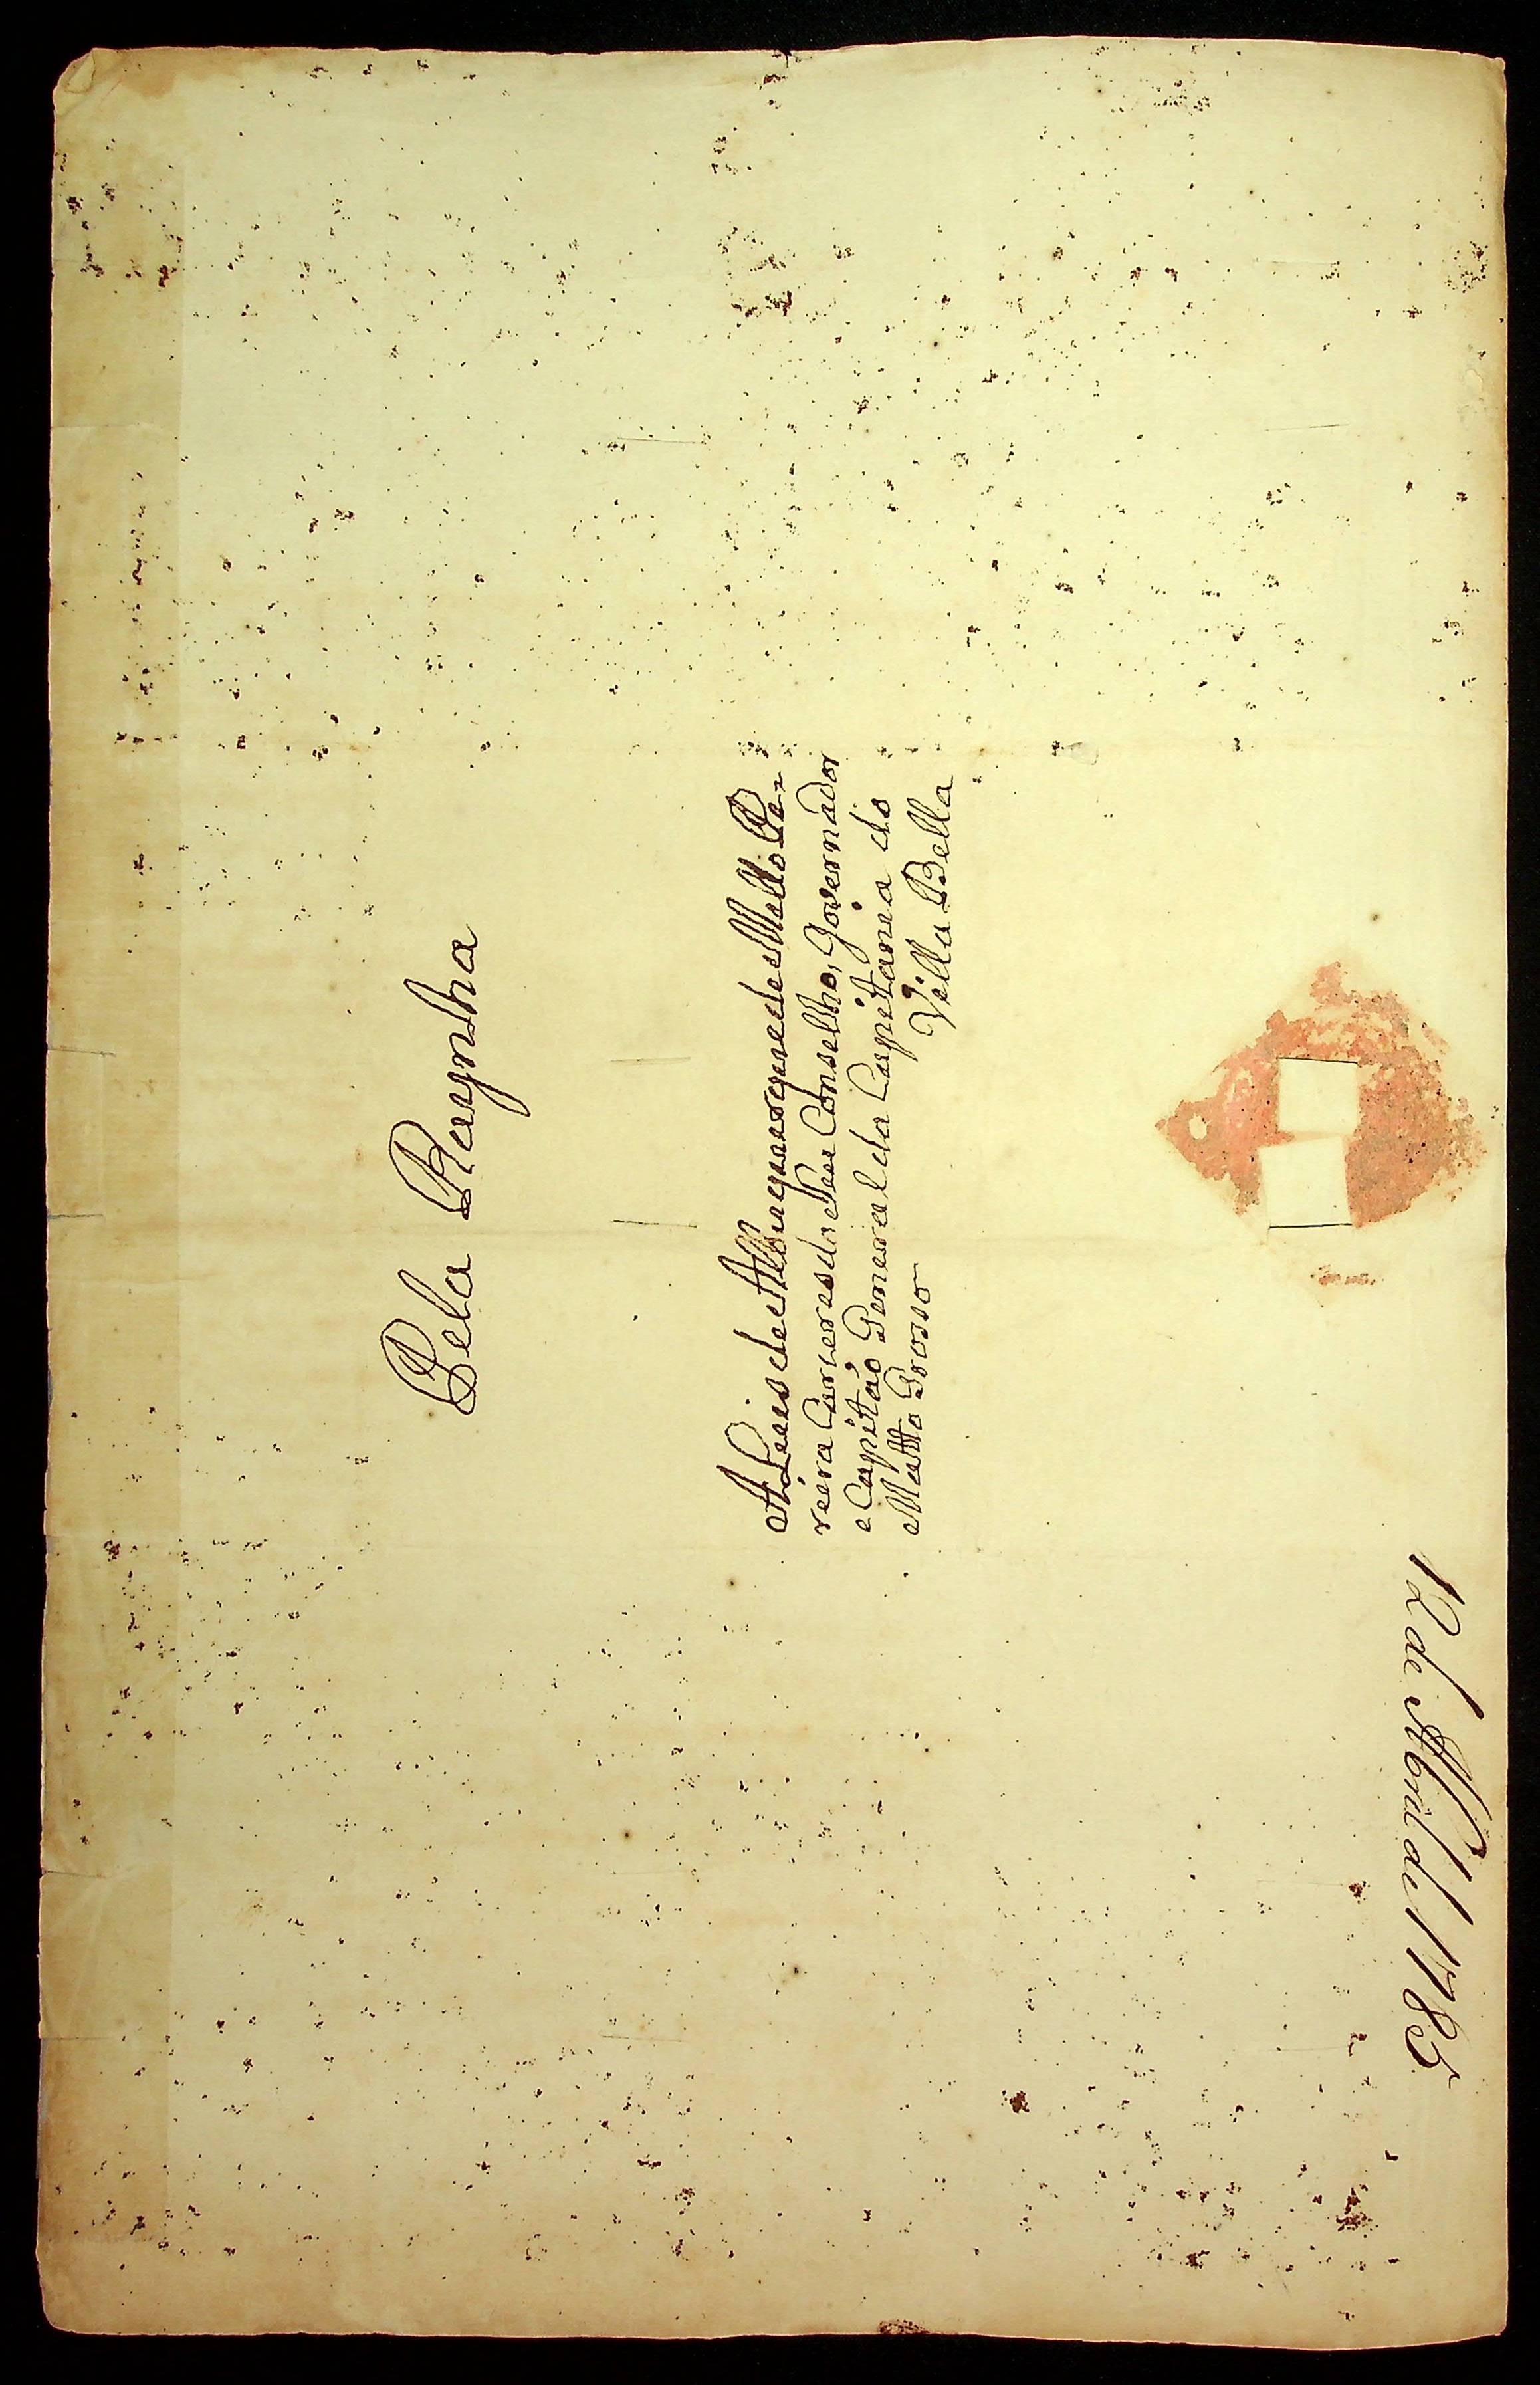 Pela Raynha
A Luis de Albuquerque de Mello Pe=
reira Caceres do Seu Conselho, Governador
e Capitaõ General da Capitania do
Matto Grosso
Villa Bella
12 de Abril de 1785